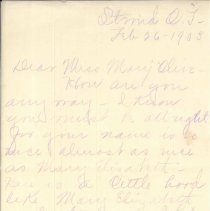 Stroud O.T.
Feb 26-1903
Dear Miss Mary Olive-
How are you
any way- I know
you must be all right
for your name is so
nice, almost as nice
as Mary Elizabeth-
Here is a little book
like Mary Elizabeth